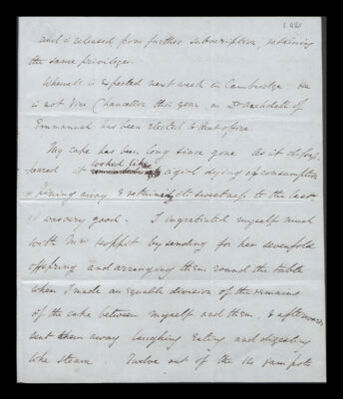 and is released from further subscription, retaining
the same privileges.
Whewell is expected next week in Cambridge. He
is not Vice Chancellor this year as Dr Archdall of
Emmanuel has been elected to that office.
My cake has been long since gone As it disap-
peared it looked like a girl dying of consumption
pining away & retaining its sweetness to the last,
it was very good - I ingratiated myself much
with Mrs Hoppit by sending for her sevenfold
offspring and arranging them round the table
when I made an equable division of the remains
of the cake between myself and them, & afterwards
sent them away laughing eating and digesting
like steam Twelve out of the 14 jam pots